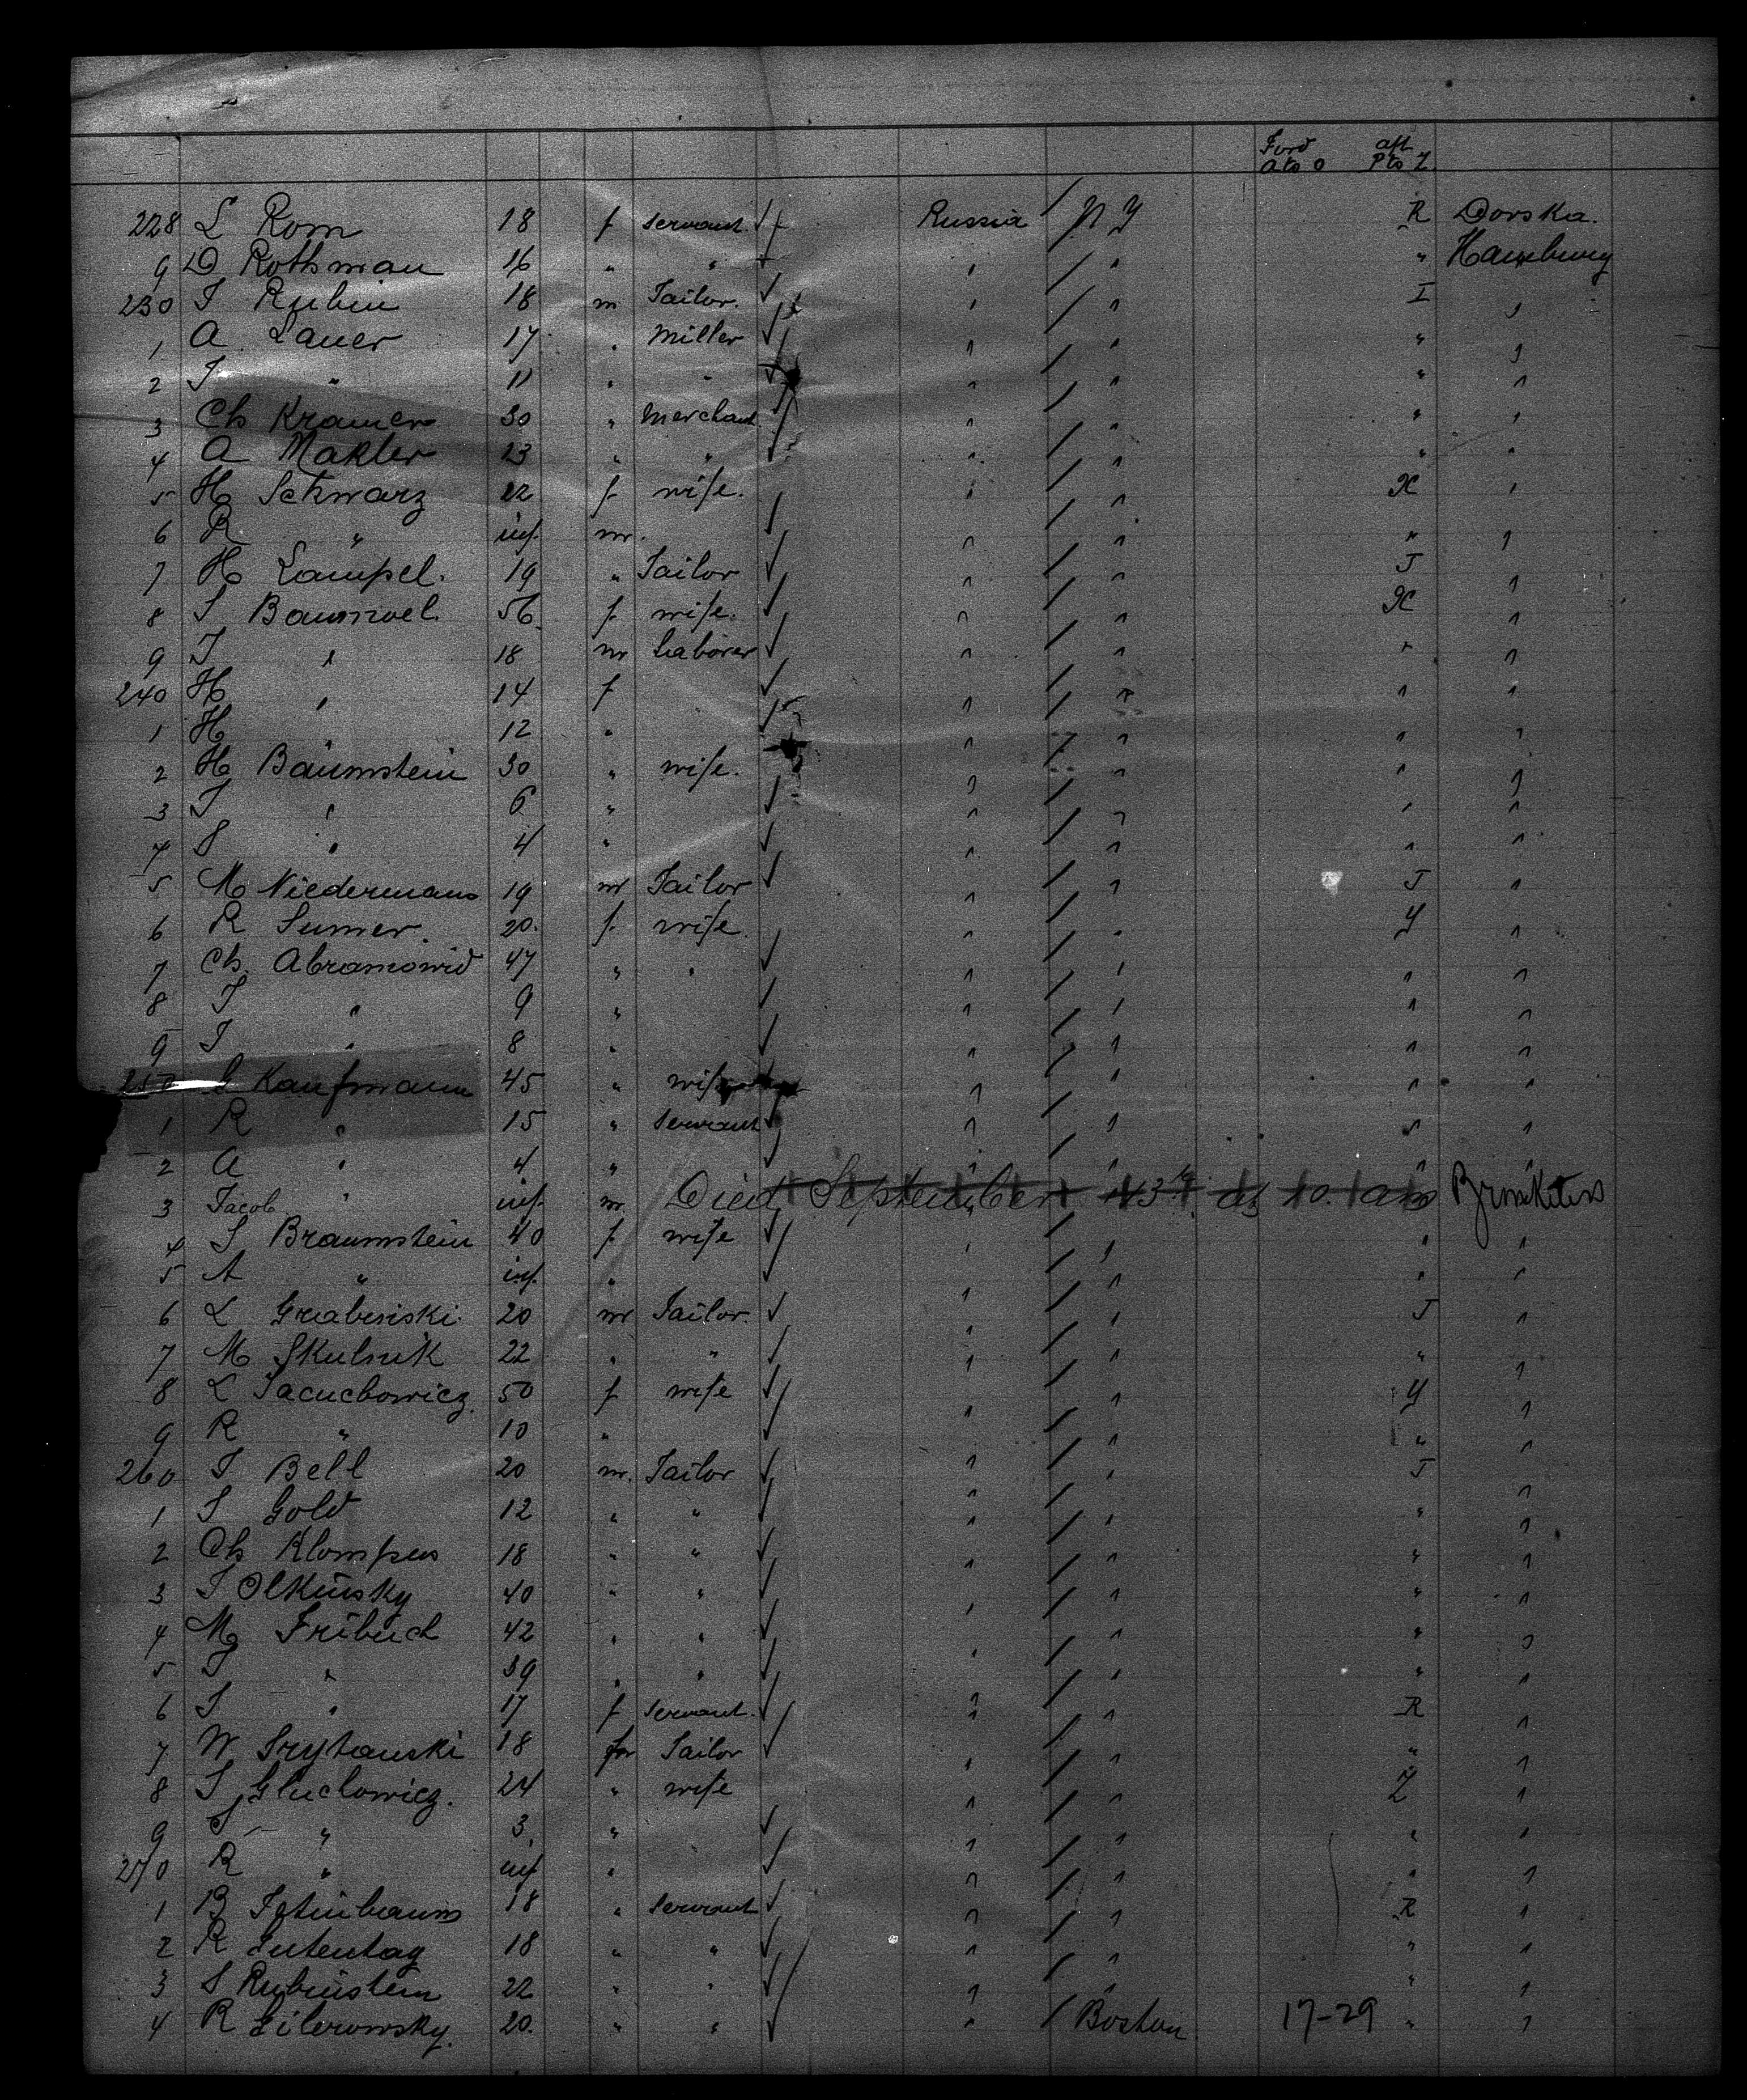 Ford aft
A to O P to Z
228 L Rom 18 f servant Russia N Y R Dorska.
9 D Rothman 16 " " " " " Hamburg
230 J Rubin 18 m Tailor. " " I "
1 A Lauer 17 " Miller " " " "
2 J " 11 " " " " " "
3 Ch Kramer 30 " Merchant " " " "
4 A Makler 23 " " " " " "
5 H Schwarz 22 f wife. " " K "
6 R " inf. m. " " " "
7 H Lampel. 19 " Tailor " " J "
8 S Baumwel 56 f wife. " " K "
9 J " 18 m Laborer " " " "
240 H " 14 f " " " "
1 H " 12 " " " " "
2 H Baumstein 30 " wife. " " " "
3 J " 6 " " " " "
4 S " 4 " " " " "
5 M Niedermann 19 m Tailor " " J "
6 R Sumer. 20. f. wife. " " Y "
7 Ch. Abramowid 47 " " " " " "
8 J " 9 " " " " "
9 J " 8 " " " " "
250 Kaufmann 45 " wife " " "
1 R " 15 " servant " " " "
2 A " 4 " " " " "
3 Jacob " inf. m. Died September 13th at 10. am
4 S Braunstein 40 f wife " " " "
5 A " inf. " " " " "
6 L Grabinski. 20 m Tailor. " " J "
7 M Skulnik 22 " " " " " "
8 L Jacuchowicz. 50 f wife " " Y "
9 R " 10 " " " " "
260 J Bell 20 m. Tailor " " J "
1 S Gold 12 " " " " " "
2 Ch Klompus 18 " " " " " "
3 J Olkinsky 40 " " " " " "
4 M Fribuch 42 " " " " " "
5 J " 39 " " " " " "
6 S " 17 f servant. " " R "
7 W 18 Tailor " " " "
8 S Gluchowicz. 24 " wife " " Z "
9 S " 3 " " " " "
270 R " inf " " " " "
1 B 18 " servant " " R "
2 R Gutentag 18 " " " " " "
3 S Rubinstein 22 " " " " " "
4 R 20. " " " Boston 17-29 " "